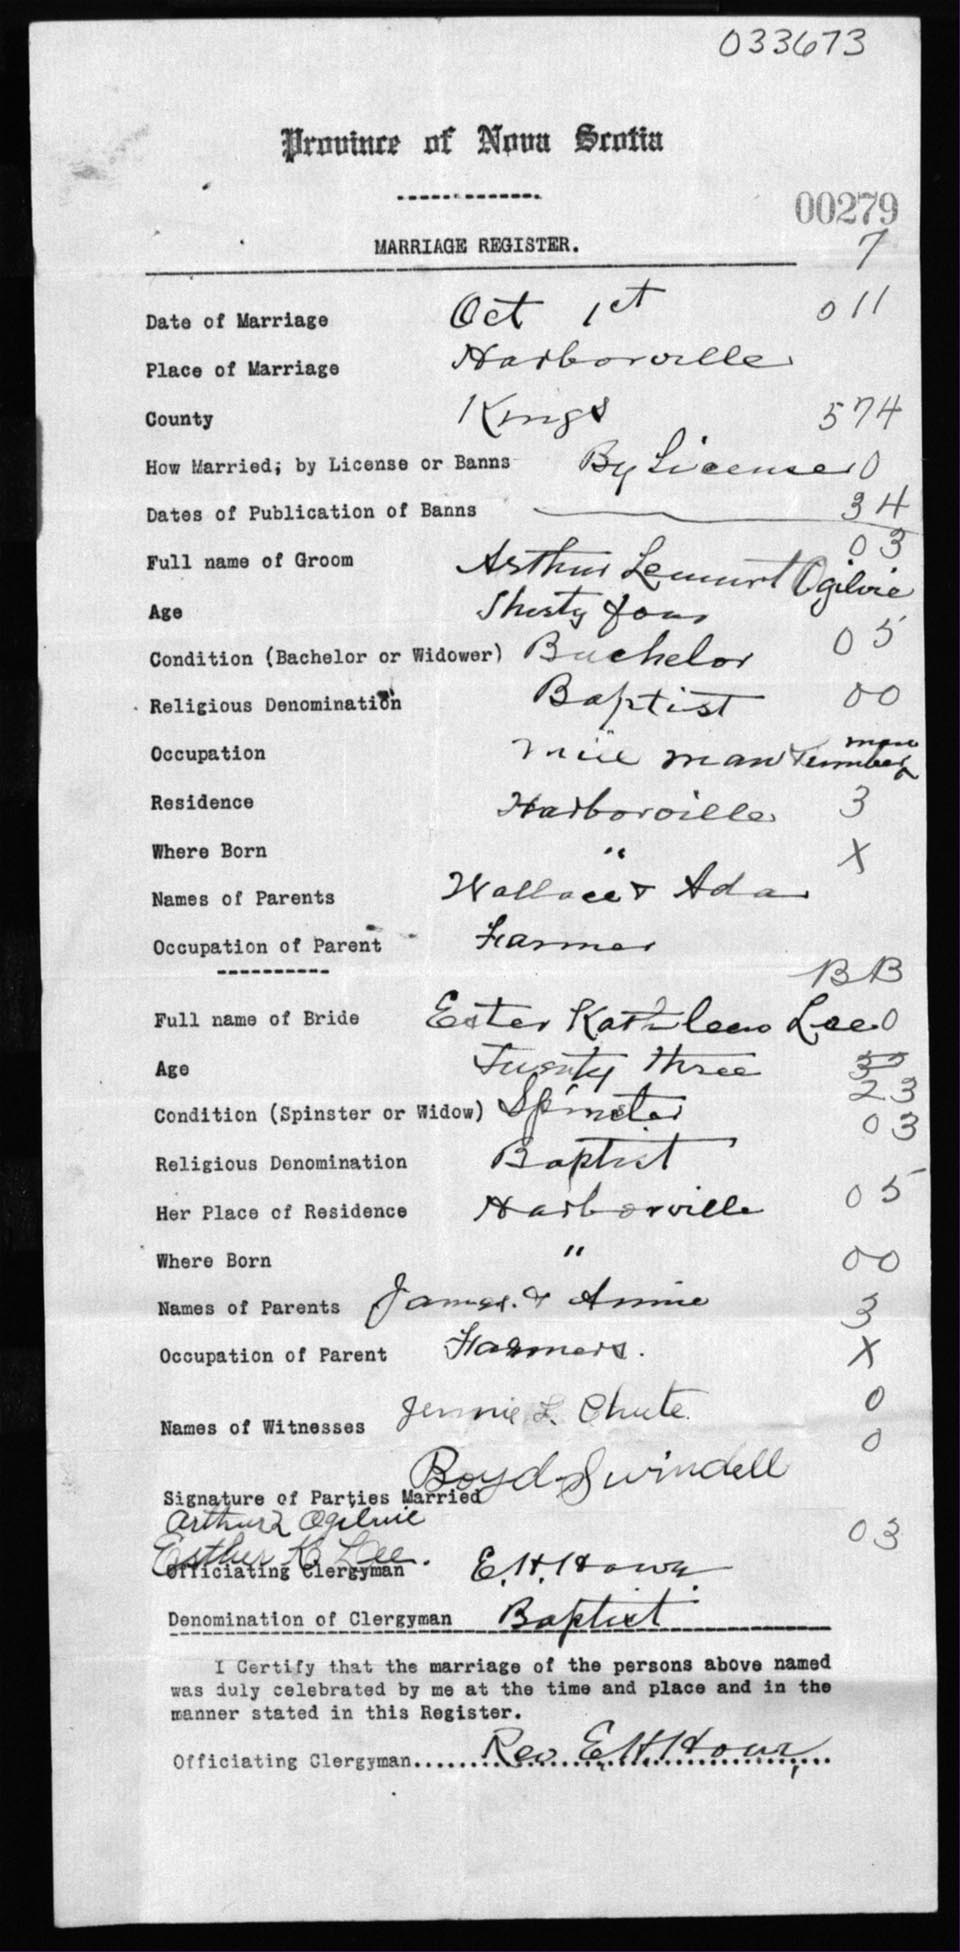 033673
Province of Nova Scotia
00279
MARRIAGE REGISTER. 7
Date of Marriage Oct 1st 011
Place of Marriage Harborville
County Kings 574
How Married; by License or Banns By License 0
Dates of Publication of Banns 34
03
Full name of Groom Arthur Ogilvie
Age Thirty four
Condition (Bachelor or Widower) Bachelor 05
Religious Denomination Baptist 00
Occupation mill man & man
Residence Harborville 3
Where Born " X
Names of Parents Wallace & Ada
Occupation of Parent Farmer
BB
Full name of Bride Ester Kathleen Lee 0
Age Twenty three
23
Condition (Spinster or Widow) Spinster 03
Religious Denomination Baptist
Her Place of Residence Harborville 05
Where Born " 00
Names of Parents James & Annie 3
Occupation of Parent Farmers. X
Names of Witnesses Jennie L. Chute 0
Boyd Swindell 0
Signature of Parties Married
Arthur L Ogilvie
Esther K Lee. 03
Officiating Clergyman E. H. Howe
Denomination of Clergyman Baptist
I Certify that the marriage of the persons above named
was duly celebrated by me at the time and place and in the
manner stated in this Register.
Officiating Clergyman Rev E. H. Howe